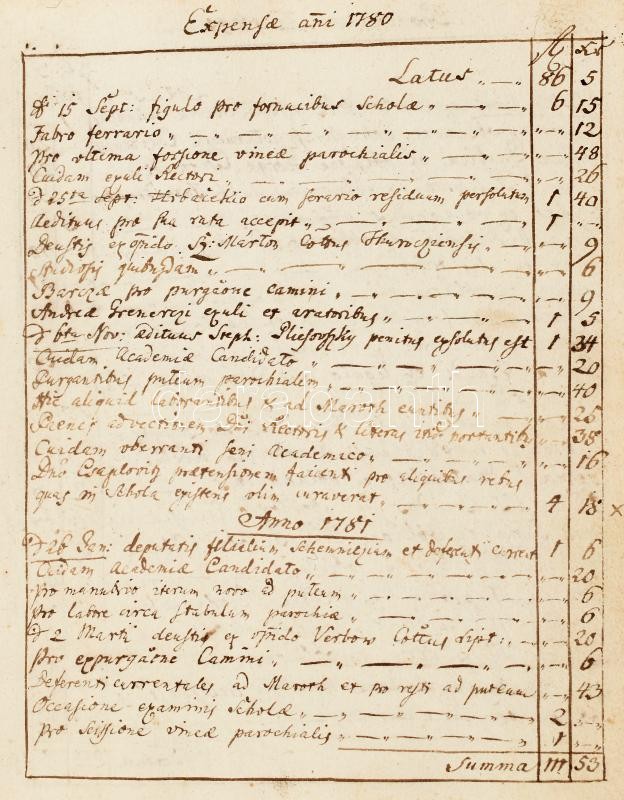 Expensæ añi 1780
fl Xr
Latus 86 5
d 15 Sept: figulo pro fornacibus Scholæ 6 15
Fabro ferrario 12
pro ultima fossione vineæ parochialis 48
Cuidam exuli Rectori 26
d 25ta Sept: cum residuum persolutum 1 40
Aedituus pro sua ruta accepit 1
Deustis ex opido Sz: Márton Cottus Thurocziensis 9
Studiosis quibusdam 6
Barczæ pro purgaōne camini 9
Andreæ exuli et aratoribus 1 5
d 6ta Nov: adituus Steph: Pliesovszky penitus exsolutus est 1 34
Cuidam Academiæ Candidato 20
Purgantibus puteum parochialem 40
aliquid laborantibus & ad Maroth euntibus 25
advectionem Dni Rectoris & literas portantibus 38
Cuidam oberranti seni Academico 16
Dno Csaplovitz prætensionem facienti pro aliquibus rebus
quas in Schola existens olim curaverat 4 18 x
Anno 1781
d 26 Jan: deputatis filialium Schemniczium et deferenti current 1 6
Cuidam Academiæ Candidato 20
pro manubrio iterum novo ad puteum 6
pro labore circa stabulum parochiæ 6
d 2 Martii deustis ex opido Verbow Cottus Lipt: 20
pro expurgaōne Camini 6
deferenti currentales ad Maroth et pro resti ad puteum 43
Occasione examinis Scholæ 2
pro Scissione vineæ parochialis 1
Summa 111 53
darabanth